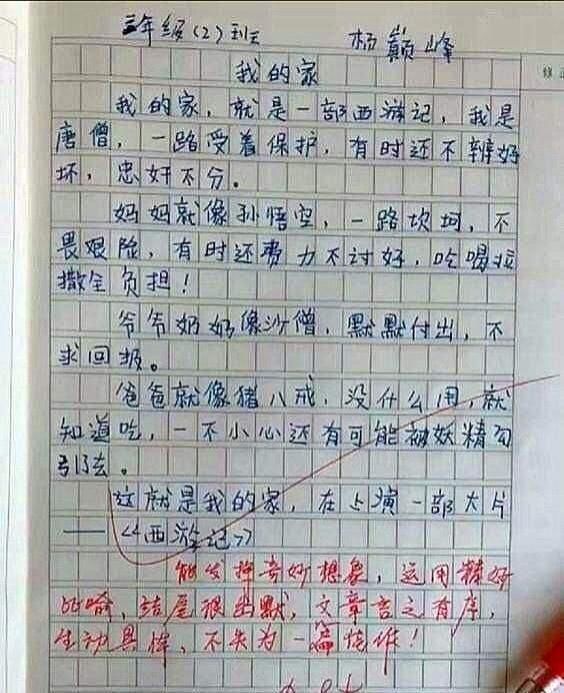 三年级(2)班 杨巅峰
我的家
我的家，就是一部西游记，我是
唐僧，一路受着保护，有时还不辨好
坏，忠奸不分。
妈妈就像孙悟空，一路坎坷，不
畏艰险，有时还费力不讨好，吃喝拉
撒全负担！
爷爷奶奶像沙僧，默默付出，不
求回报。
爸爸就像猪八戒，没什么用，就
知道吃，一不小心还有可能被妖精勾
引去。
这就是我的家，在上演一部大片
——《西游记》
能发挥奇妙想象，运用精好
比喻，结尾很幽默，文章言之有序，
生动具体，不失为一篇佳作！